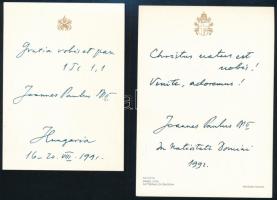 Gratia vobis et pax
1 Tes 1,1
Joannes Paulus PP II
Hungaria
16-20. VIII. 1991.
Christus natus est
nobis!
Venite, adoremus!
Joannes Paulus PP II
In Nativitate Domini
1992.